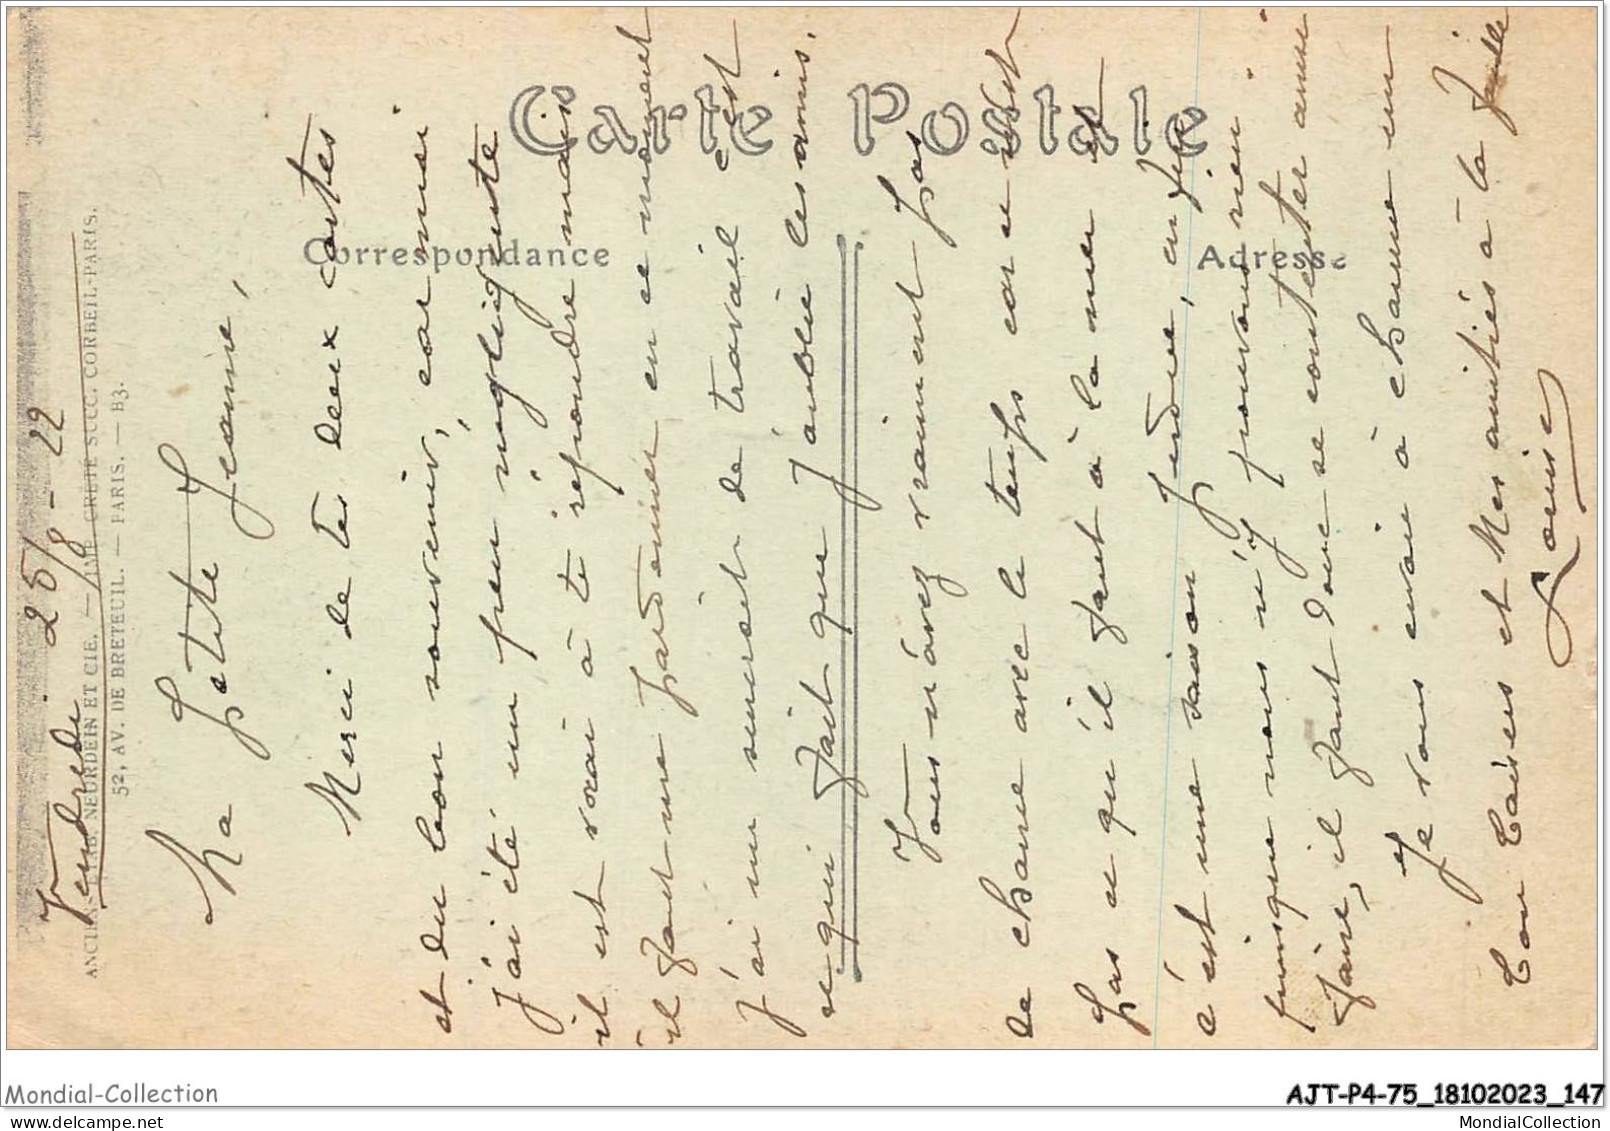 Carte Postale
Correspondance
Adresse
ANCIENS ETAB. NEURDEIN ET CIE. — IMP. CRÉTÉ SUCC. CORBEIL-PARIS.
52, AV. DE BRETEUIL. — PARIS. — B3.
Vendredi 25/8-22
Ma petite Jeanne,
Merci de tes deux cartes
et du bon souvenir, car
j'ai été un peu négligente
il est vrai à te répondre mais
il faut me pardonner en ce moment
j'ai un surcroît de travail c'est
ce qui fait que j'oublie les amis.
Vous n'avez vraiment pas
de chance avec le temps car ce n'est
pas ce qu'il faut à la mer et
c'est une saison perdue, enfin
puisque nous n'y pouvons rien
faire, il faut donc se contenter ainsi
Je vous envoie à chacune un
bon baiser et Mes amitiés à la famille
Louise
Mondial-Collection
AJT-P4-75_18102023_147
MondialCollection